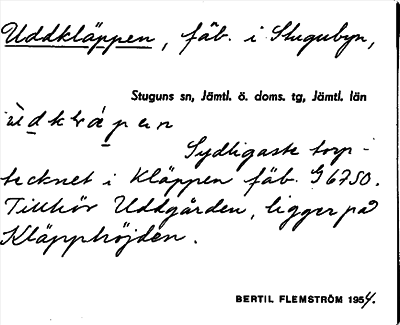 Uddkläppen, fäb. i Stugubyn,
Stuguns sn, Jämtl. ö. doms. tg, Jämtl. län
Sydligaste torp-
tecknet i Kläppen fäb. G6750.
Tillhör Uddgården, ligger på
Kläpphöjden.
BERTIL FLEMSTRÖM 1954.